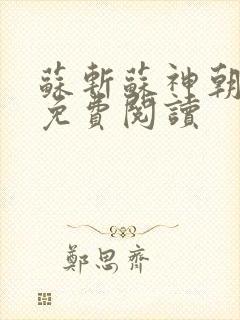 蘇斬蘇神朝
免費閱讀
鄭思齊